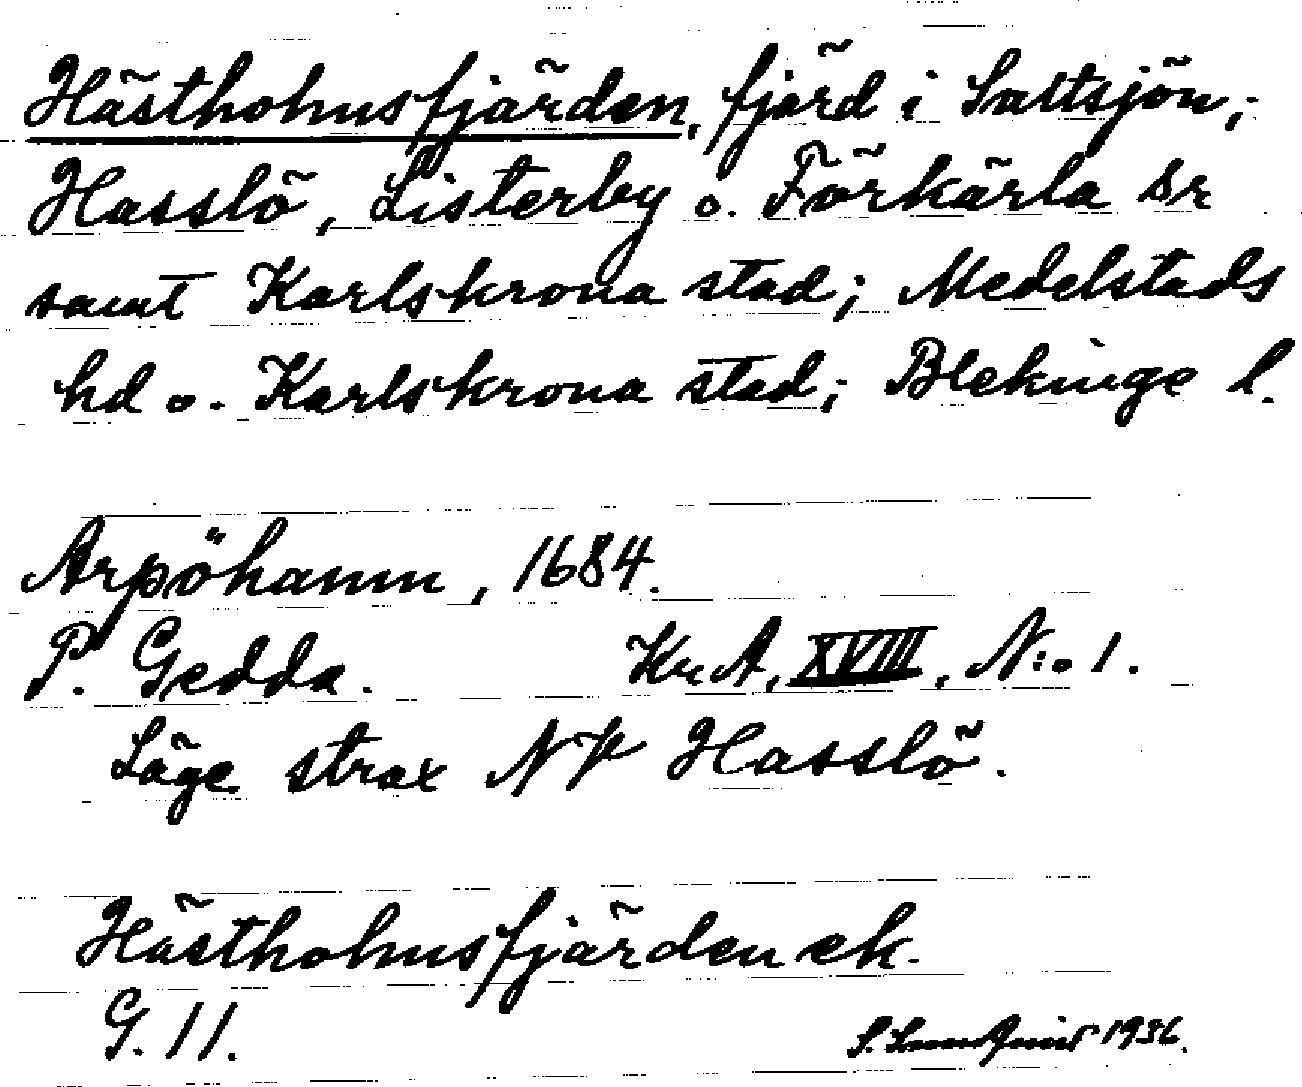 Hästholmsfjärden, fjärd i Saltsjön;
Hasslö, Listerby o. Förkärla sr
samt Karlskrona stad; Medelstads
hd o. Karlskrona stad; Blekinge l.
Arpöhamn, 1684.
P. Gedda. Kr.A, XVIII, N:o 1.
Läge strax NV Hasslö.
Hästholmsfjärden ek.
G. 11. 1936.